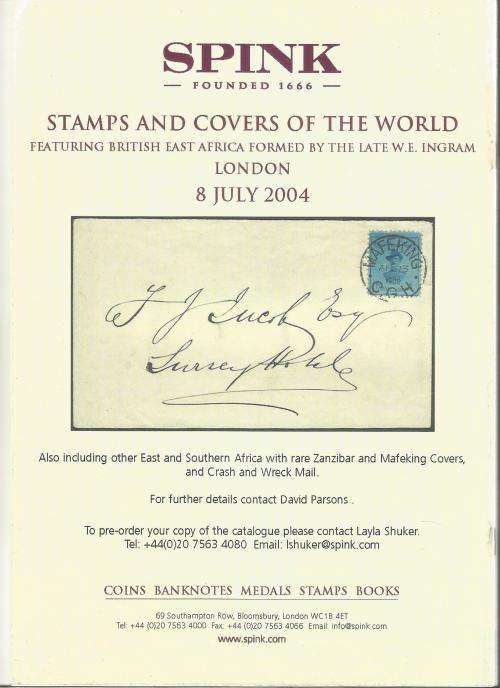 SPINK
FOUNDED 1666
STAMPS AND COVERS OF THE WORLD
FEATURING BRITISH EAST AFRICA FORMED BY THE LATE W.E. INGRAM
LONDON
8 JULY 2004
MAFEKING
C.G.H.
F J Jacob Esq
Surrey Hotel
Also including other East and Southern Africa with rare Zanzibar and Mafeking Covers,
and Crash and Wreck Mail.
For further details contact David Parsons .
To pre-order your copy of the catalogue please contact Layla Shuker.
Tel: +44(0)20 7563 4080 Email: lshuker@spink.com
COINS BANKNOTES MEDALS STAMPS BOOKS
69 Southampton Row, Bloomsbury, London WC1B 4ET
Tel: +44 (0)20 7563 4000 Fax: +44 (0)20 7563 4066 Email: info@spink.com
www.spink.com